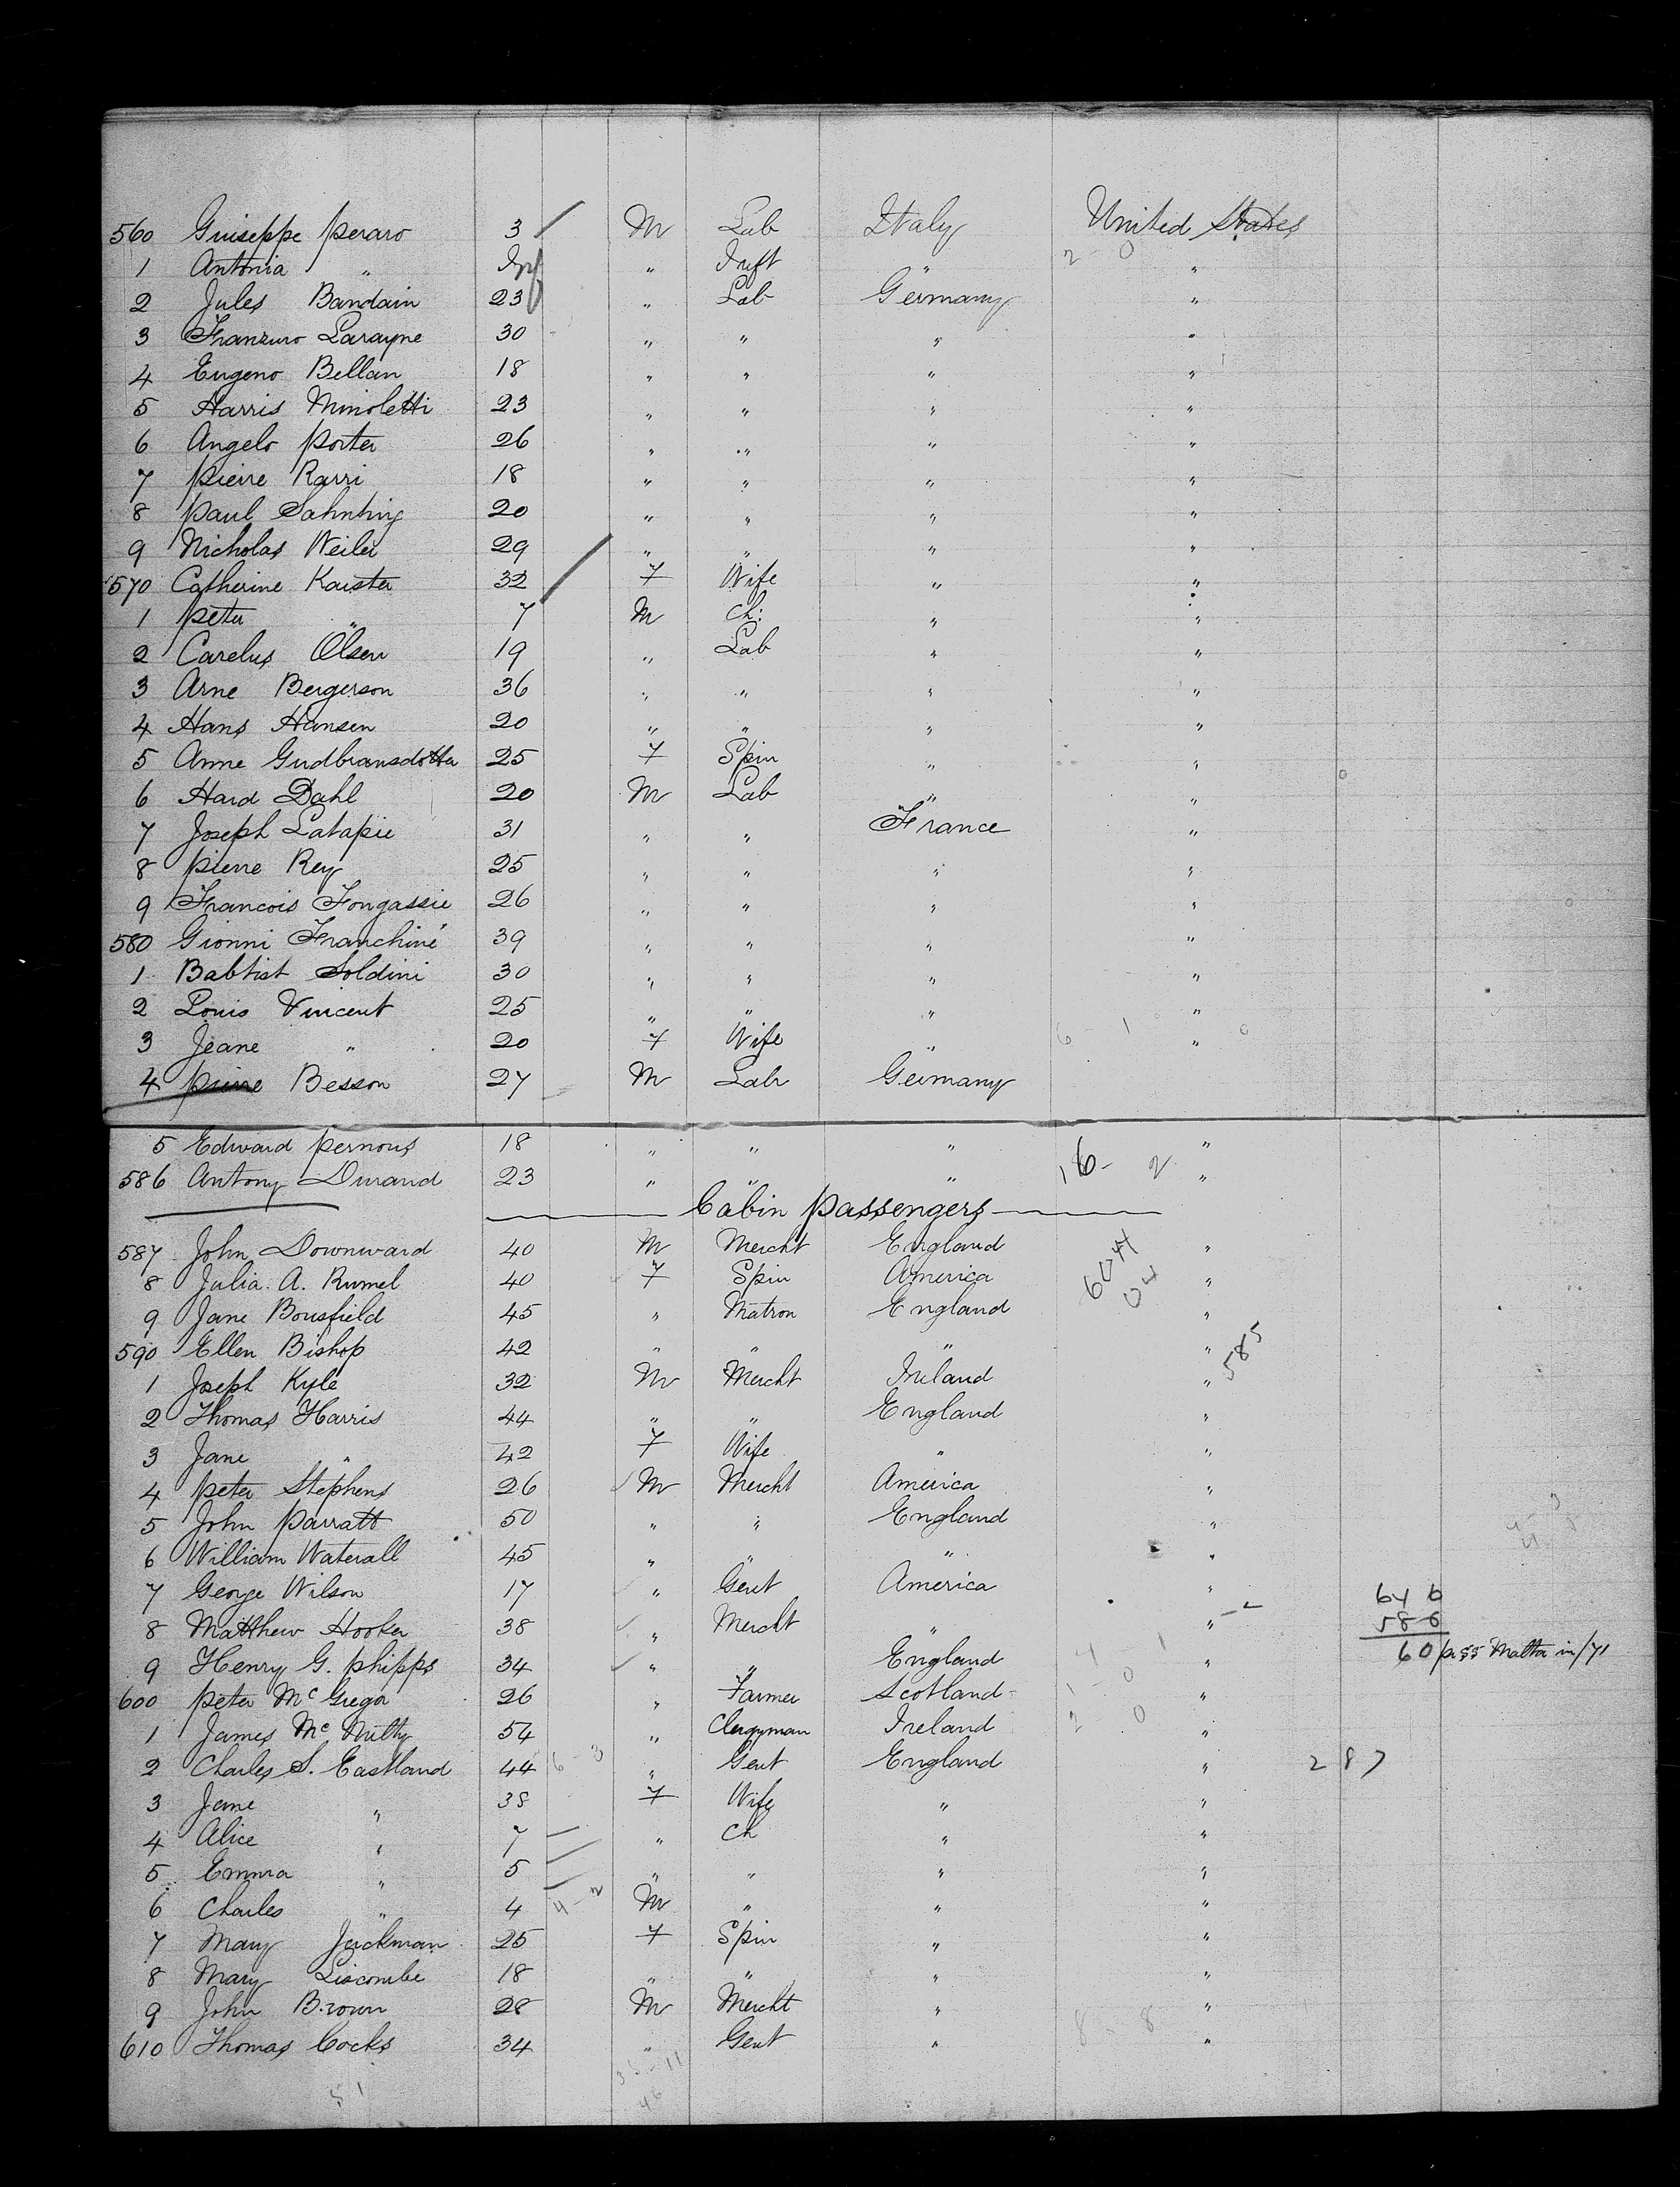 560 Guiseppe Peraro 3 M Lab Italy United States
1 Antonia " Inf " Inft " "
2 Jules Bandain 23 " Lab Germany "
3 Franzuro Larayne 30 " " " "
4 Eugeno Bellan 18 " " " "
5 Harris Minoletti 23 " " " "
6 Angelo Porter 26 " " " "
7 Pierre Rarri 18 " " " "
8 Paul Sahnting 20 " " " "
9 Nicholas Weiler 29 " " " "
570 Catherine Kaister 32 F Wife " "
1 Peter " 7 M Ch: " "
2 Carelus Olsen 19 " Lab " "
3 Arne Bergerson 36 " " " "
4 Hans Hansen 20 " " " "
5 Anne Gudbransdotter 25 F Spin " "
6 Hard Dahl 20 M Lab " "
7 Joseph Latapie 31 " " France "
8 Pierre Rey 25 " " " "
9 Francois Fongassie 26 " " " "
580 Gionni Franchini 39 " " " "
1 Babtist Soldini 30 " " " "
2 Louis Vincent 25 " " " "
3 Jeane " 20 F Wife " "
4 Pierre Besson 27 M Labr Germany
5 Edward Pernous 18 " " " "
586 Antony Durand 23 " " " 16 - 2 "
Cabin Passengers
587 John Downward 40 M Mercht England "
8 Julia. A. Rumel 40 F Spin America "
9 Jane Bousfield 45 " Matron England "
590 Ellen Bishop 42 " " " "
585
1 Joseph Kyle 32 M Mercht Ireland "
2 Thomas Harris 44 " " England "
3 Jane " 42 F Wife " "
4 Peter Stephens 26 M Mercht America "
5 John Parratt 50 " " England "
6 William Waterall 45 " " " "
7 George Wilson 17 " Gent America "
646
8 Matthew Hooker 38 " Mercht " "
586
9 Henry G. Phipps 34 " " England "
60
600 Peter McGregor 26 " Farmer Scotland "
1 James McNulty 54 " Clergyman Ireland "
2 Charles S. Eastland 44 " Gent England " 287
3 Jane " 38 F Wife " "
4 Alice " 7 " Ch " "
5 Emma " 5 " " " "
6 Charles " 4 M " " "
7 Mary Jackman 25 F Spin " "
8 Mary Liscombe 18 " " " "
9 John Brown 28 M Mercht " "
610 Thomas Cocks 34 " Gent " "